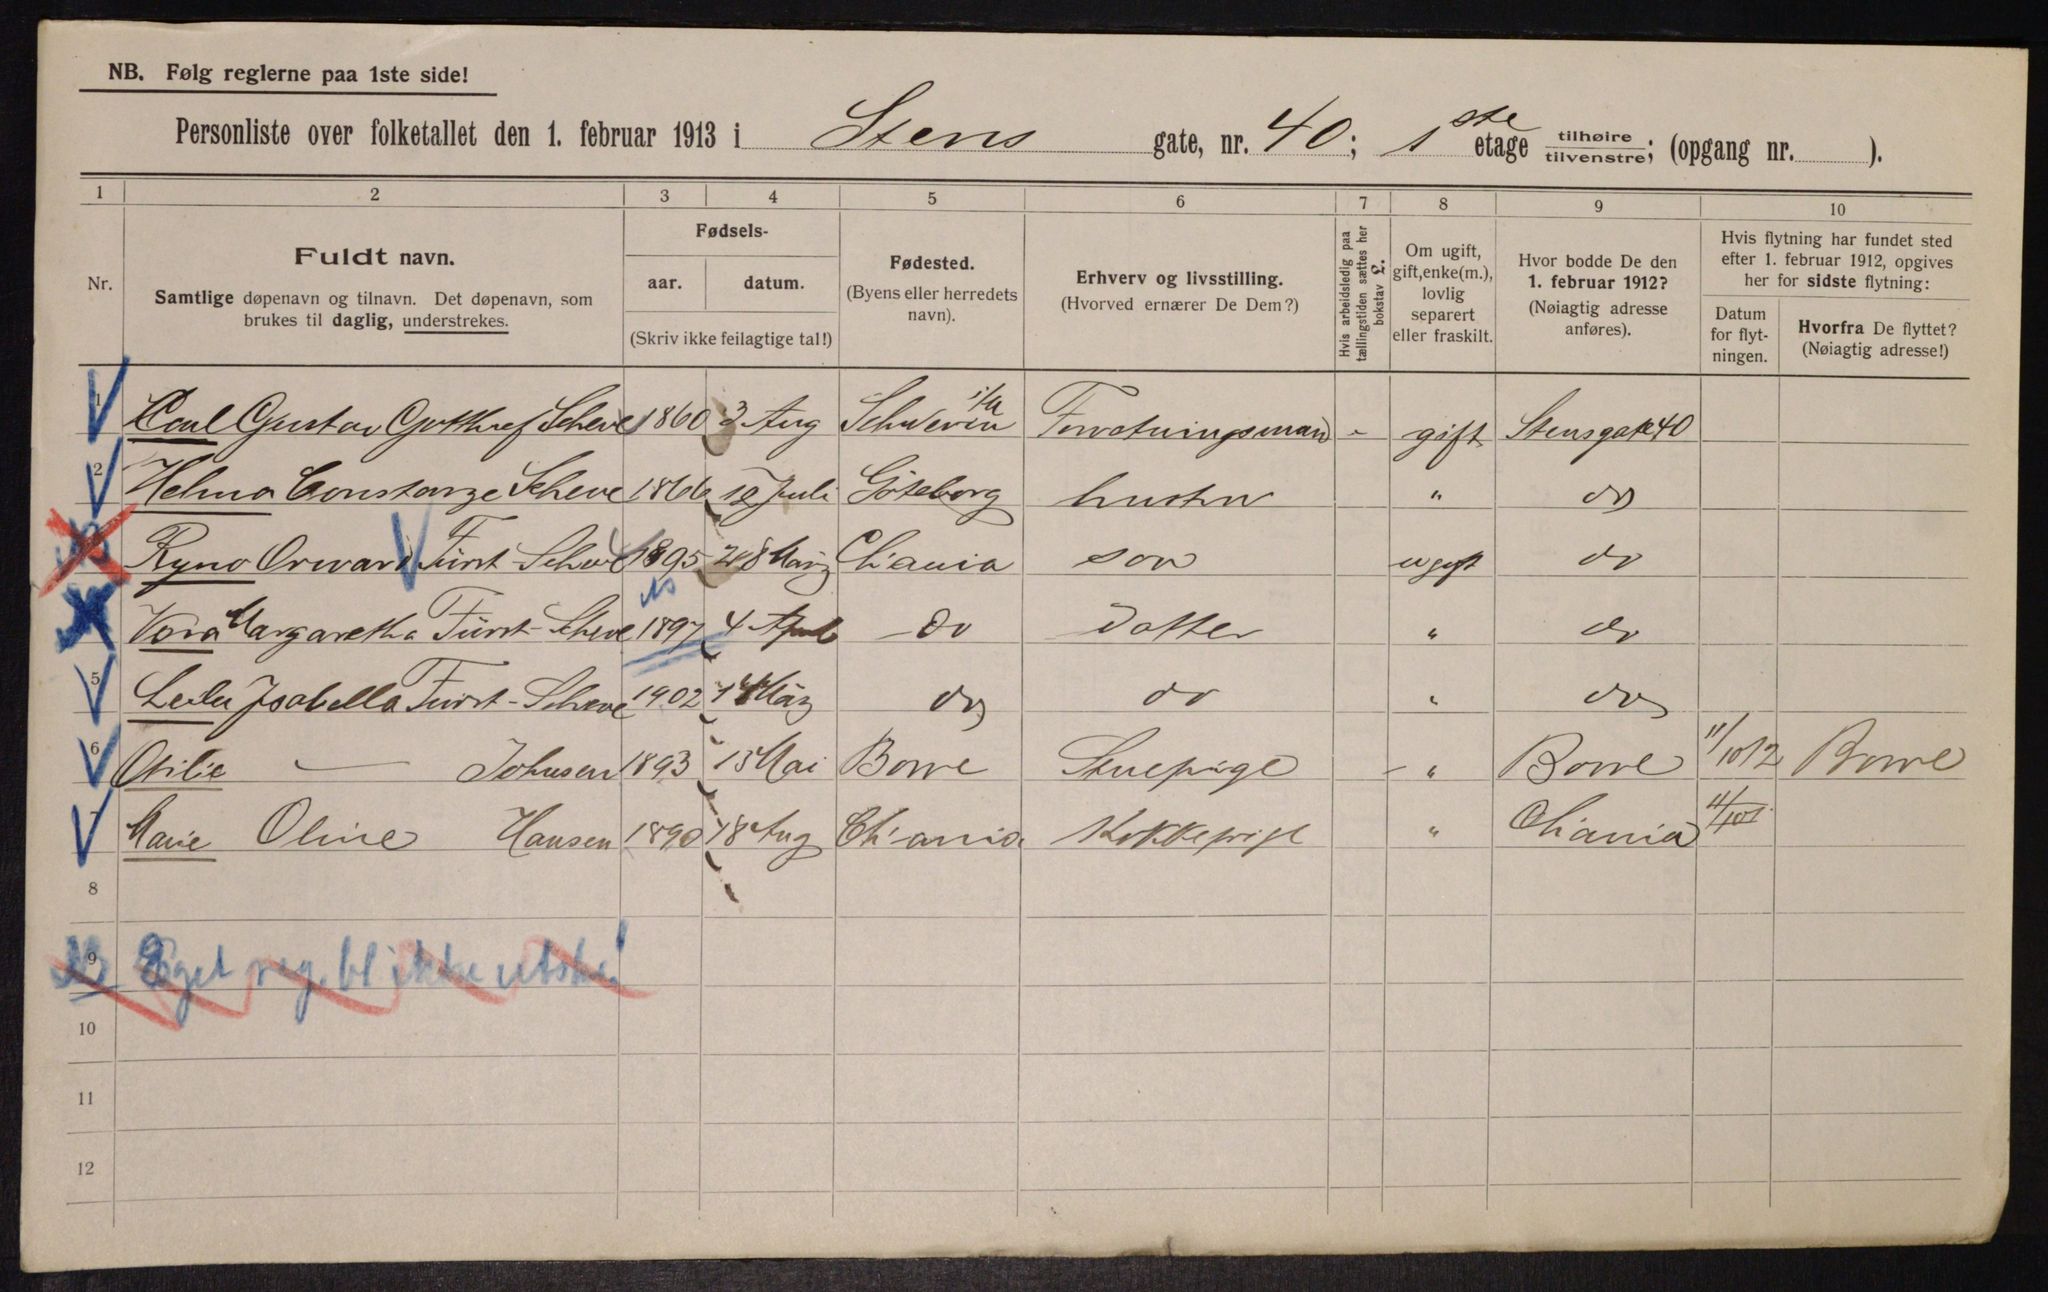 NB. Følg reglerne paa 1ste side!
Personliste over folketallet den 1. februar 1913 i Stens gate, nr. 40; 1ste etage tilhøire/tilvenstre; (opgang nr. ).
1 2 3 4 5 6 7 8 9 10
Nr.
Fuldt navn.
Samtlige døpenavn og tilnavn. Det døpenavn, som
brukes til daglig, understrekes.
Fødsels-
aar. datum.
(Skriv ikke feilagtige tal!)
Fødested.
(Byens eller herredets
navn).
Erhverv og livsstilling.
(Hvorved ernærer De Dem?)
Hvis arbeidsledig paa
tællingstiden sættes her
bokstav £.
Om ugift,
gift, enke(m.),
lovlig
separert
eller fraskilt.
Hvor bodde De den
1. februar 1912?
(Nøiagtig adresse
anføres).
Hvis flytning har fundet sted
efter 1. februar 1912, opgives
her for sidste flytning:
Datum
for flyt-
ningen.
Hvorfra De flyttet?
(Nøiagtig adresse!)
1 Carl Gustav Scheve 1860 3 Aug Schwerin i/M Forretningsmand - gift Stensgate 40
2 Helma Constanze Scheve 1866 Juli Göteborg hustru " do
Ryno Orvar Fürst-Scheve 1895 28 März Chania son ugift do
Vera Margaretha Fürst-Scheve 1897 4 April do datter " do
5 Leila Isabella Fürst-Scheve 1902 März do do " do
6 Otilie — Johnsen 1893 13 Mai Borre Stuepige - " Borre 11/10 12 Borre
7 Marie Oline Hansen 1890 18 Aug Chania Kokkepige " Chania
8
9
NB Eget reg.bl ikke utskr!
10
11
12